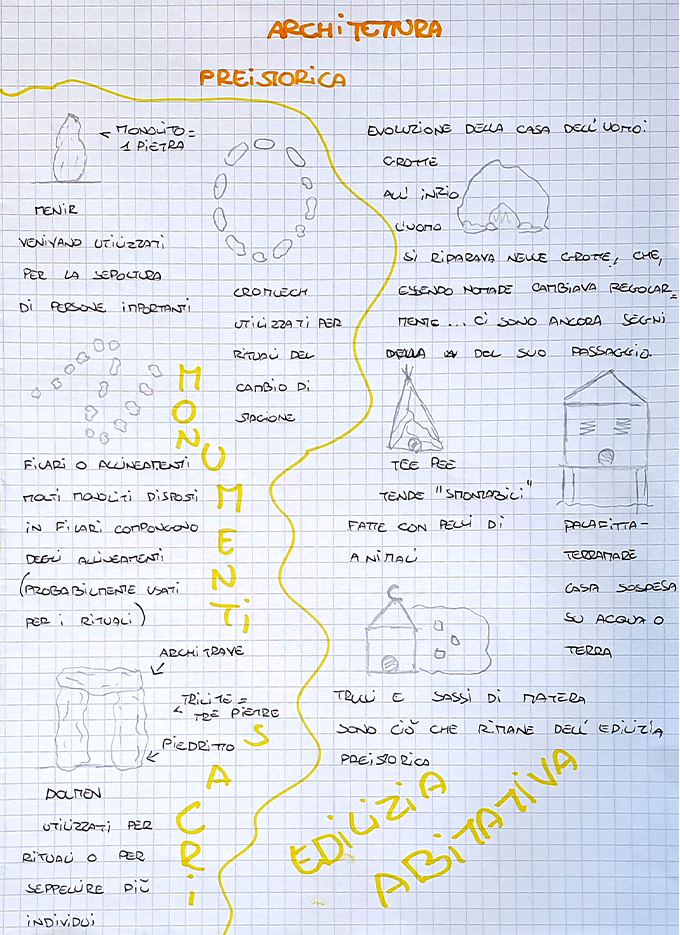 ARCHITETTURA
PREISTORICA
MONOLITO =
1 PIETRA
MENIR
VENIVANO UTILIZZATI
PER LA SEPOLTURA
DI PERSONE IMPORTANTI
CROMLECH
UTILIZZATI PER
RITUALI DEL
CAMBIO DI
STAGIONE
FILARI O ALLINEAMENTI
MOLTI MONOLITI DISPOSTI
IN FILARI COMPONGONO
DEGLI ALLINEAMENTI
(PROBABILMENTE USATI
PER I RITUALI)
ARCHITRAVE
TRILITE =
TRE PIETRE
PIEDRITTO
DOLMEN
UTILIZZATI PER
RITUALI O PER
SEPPELLIRE PIÙ
INDIVIDUI
MONUMENTI
SACRI
EVOLUZIONE DELLA CASA DELL'UOMO:
GROTTE
ALL' INIZIO
L'UOMO
SI RIPARAVA NELLE GROTTE, CHE,
ESSENDO NOMADE CAMBIAVA REGOLAR=
MENTE... CI SONO ANCORA SEGNI
DELLA DEL SUO PASSAGGIO.
TEE PEE
TENDE "SMONTABILI"
FATTE CON PELLI DI
ANIMALI
PALAFITTA-
TERRAMARE
CASA SOSPESA
SU ACQUA O
TERRA
TRULLI E SASSI DI MATERA
SONO CIÒ CHE RIMANE DELL'EDILIZIA
PREISTORICA
EDILIZIA
ABITATIVA